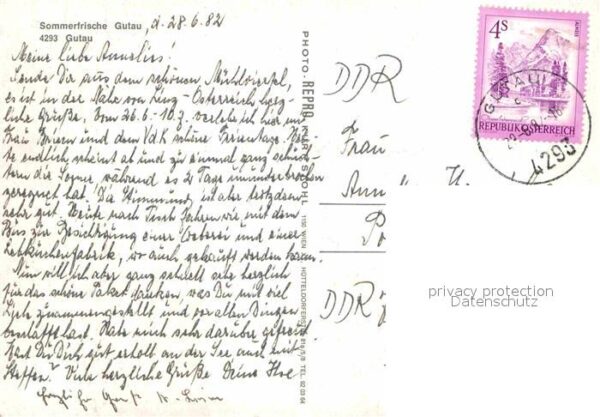 Sommerfrische Gutau
4293 Gutau
d. 28.6.82
Meine liebe Annelies!
Sende Dir aus dem schönen Mühlviertel,
es ist in der Nähe von Linz - Österreich herz-
liche Grüße. Vom 26.6.-10.7. verlebe ich hier mit
Frau und dem VdK schöne Ferientage. Heu-
te endlich scheint ab und zu einmal ganz schüch-
tern die Sonne während es 2 Tage ununterbrochen
geregnet hat. Die Stimmung ist aber trotzdem
sehr gut. Heute nach Tisch fahren wir mit dem
Bus zur Besichtigung einer Weberei und einer
Lebkuchenfabrik, wo auch gekauft werden kann.
Nun will ich aber ganz schnell sehr herzlich
für das schöne Paket danken, was Du mit viel
Liebe zusammengestellt und vor allen Dingen
beschafft hast. Habe mich sehr darüber gefreut.
Hast Du Dich gut erholt an der See auch mit
Steffen? Viele herzliche Grüße Deine Ilse
Herzliche
PHOTO-REPRO KARL STOHL 1150 WIEN HÜTTELDORFERSTR. TEL. 92 03 64
DDR
Frau
Ann " U.
DDR
4S
REPUBLIK ÖSTERREICH
GUTAU
4293
privacy protection
Datenschutz